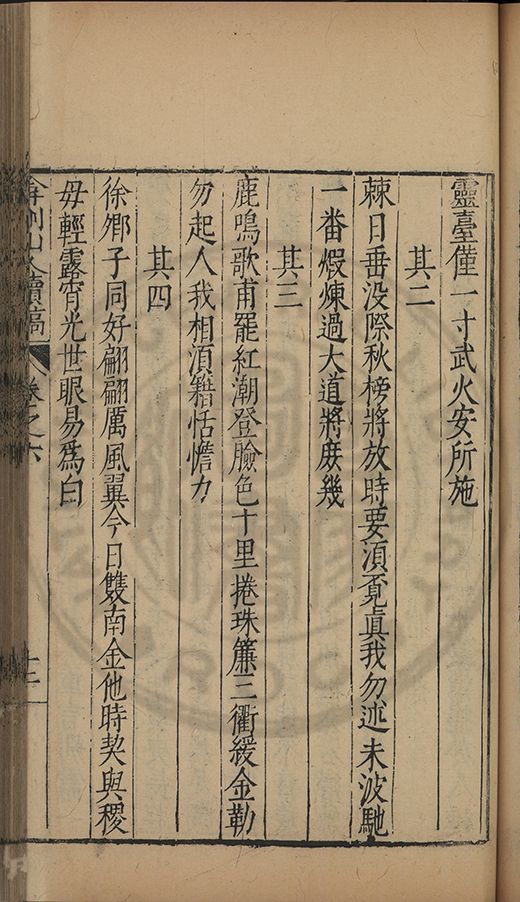 靈臺僅一寸武火安所施
其二
棘日垂没際秋榜將放時要湏覔眞我勿述未波馳
一番煆煉過大道將庻幾
其三
鹿鳴歌甫罷紅潮登臉色十里捲珠簾三衢緩金勒
勿起人我相湏籍恬憺力
其四
徐鄉子同好翩翩厲風翼今日雙南金他時契與稷
毋輕露宵光世眼易爲白
山人續稿 卷之六